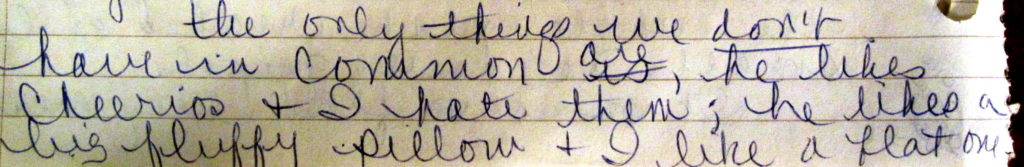 the only things we don't
have in common are, he likes
Cheerios + I hate them; he likes a
big fluffy pillow + I like a flat one.